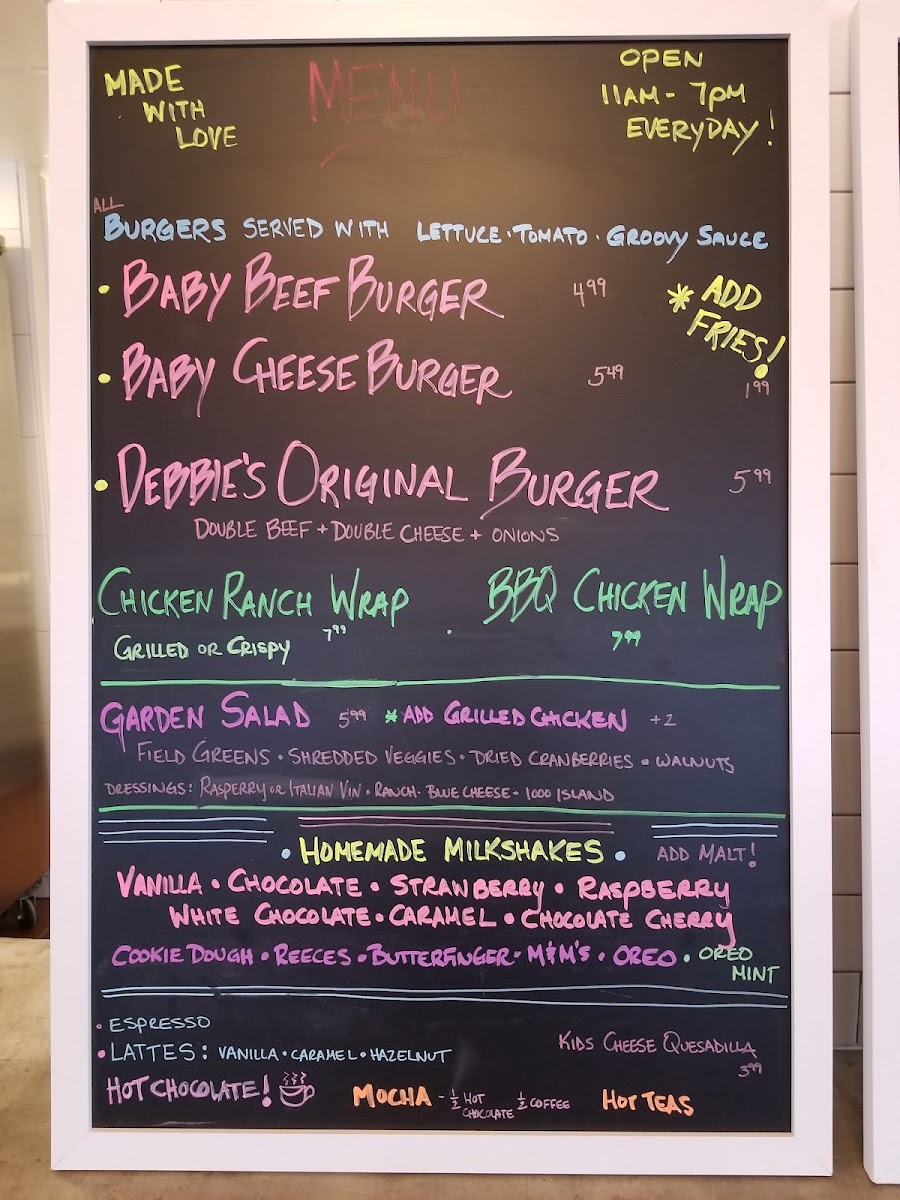 MADE
WITH
LOVE
MENU
OPEN
11AM - 7PM
EVERYDAY!
ALL
BURGERS SERVED WITH LETTUCE · TOMATO · GROOVY SAUCE
• BABY BEEF BURGER 4.99
* ADD
FRIES!
1.99
• BABY CHEESE BURGER 5.49
• DEBBIE'S ORIGINAL BURGER 5.99
DOUBLE BEEF + DOUBLE CHEESE + ONIONS
CHICKEN RANCH WRAP 7.99
GRILLED OR CRISPY
BBQ CHICKEN WRAP
7.99
GARDEN SALAD 5.99 * ADD GRILLED CHICKEN +2
FIELD GREENS · SHREDDED VEGGIES · DRIED CRANBERRIES · WALNUTS
DRESSINGS: RASPERRY OR ITALIAN VIN · RANCH · BLUE CHEESE - 1000 ISLAND
• HOMEMADE MILKSHAKES • ADD MALT!
VANILLA • CHOCOLATE • STRAWBERRY • RASPBERRY
WHITE CHOCOLATE • CARAMEL • CHOCOLATE CHERRY
COOKIE DOUGH • REECES • BUTTERFINGER • M&M'S • OREO • OREO
MINT
• ESPRESSO
• LATTES: VANILLA • CARAMEL • HAZELNUT
KIDS CHEESE QUESADILLA
3.99
HOT CHOCOLATE!
MOCHA - ½ HOT CHOCOLATE ½ COFFEE
HOT TEAS